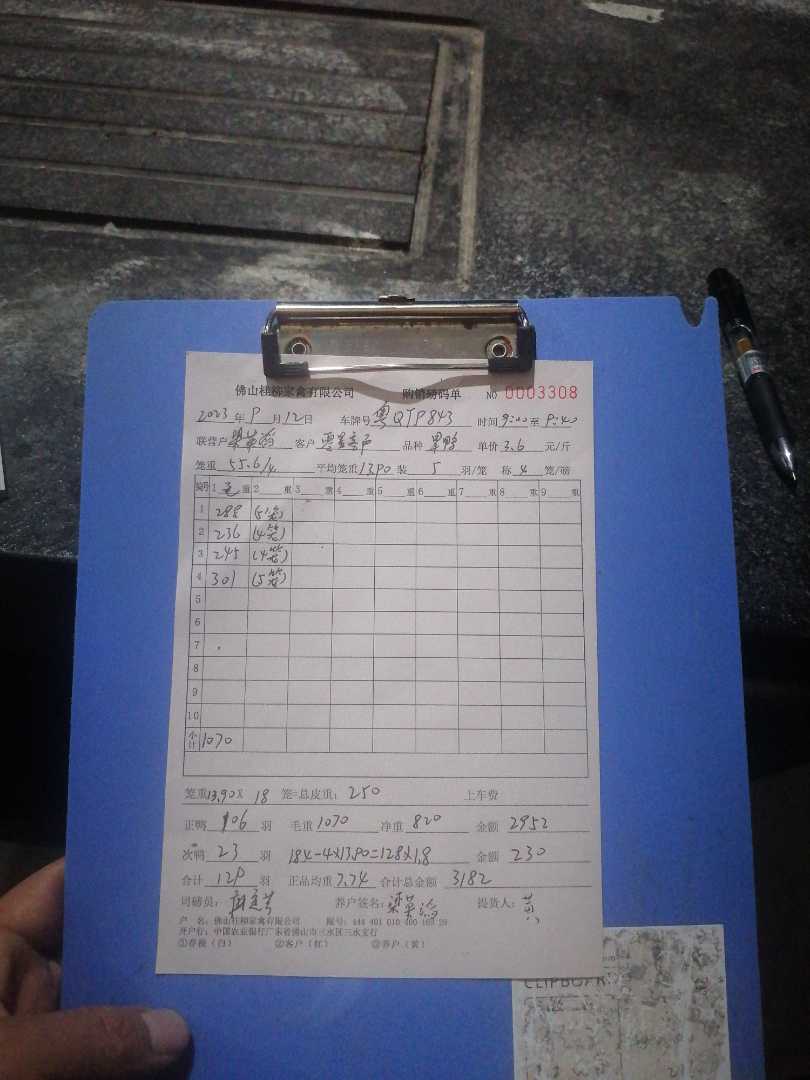 佛山桂柳家禽有限公司 购销磅码单 NO 0003308
2023年9月12日 车牌号粤QTP843 时间9:00至9:40
联营户 客户 品种 单价3.6元/斤
笼重55.6/4 平均笼重13.90装5羽/笼 称4笼/磅
磅号 1毛重 2重 3重 4重 5重 6重 7重 8重 9重
1 288 (5笼)
2 236 (4笼)
3 245 (4笼)
4 301 (5笼)
5
6
7
8
9
10
小计 1070
笼重13.90×18笼=总皮重:250 上车费
正鸭106羽 毛重1070 净重820 金额2952
次鸭23羽 184-4×13.90=128×1.8 金额230
合计129羽 正品均重7.74 合计总金额3182
司磅员: 养户签名: 提货人:黄
户 名:佛山桂柳家禽有限公司 账号:
开户行:中国农业银行广东省佛山市三水区三水支行
①存根(白) ②客户(红) ③养户(黄)
CLIPBOAR